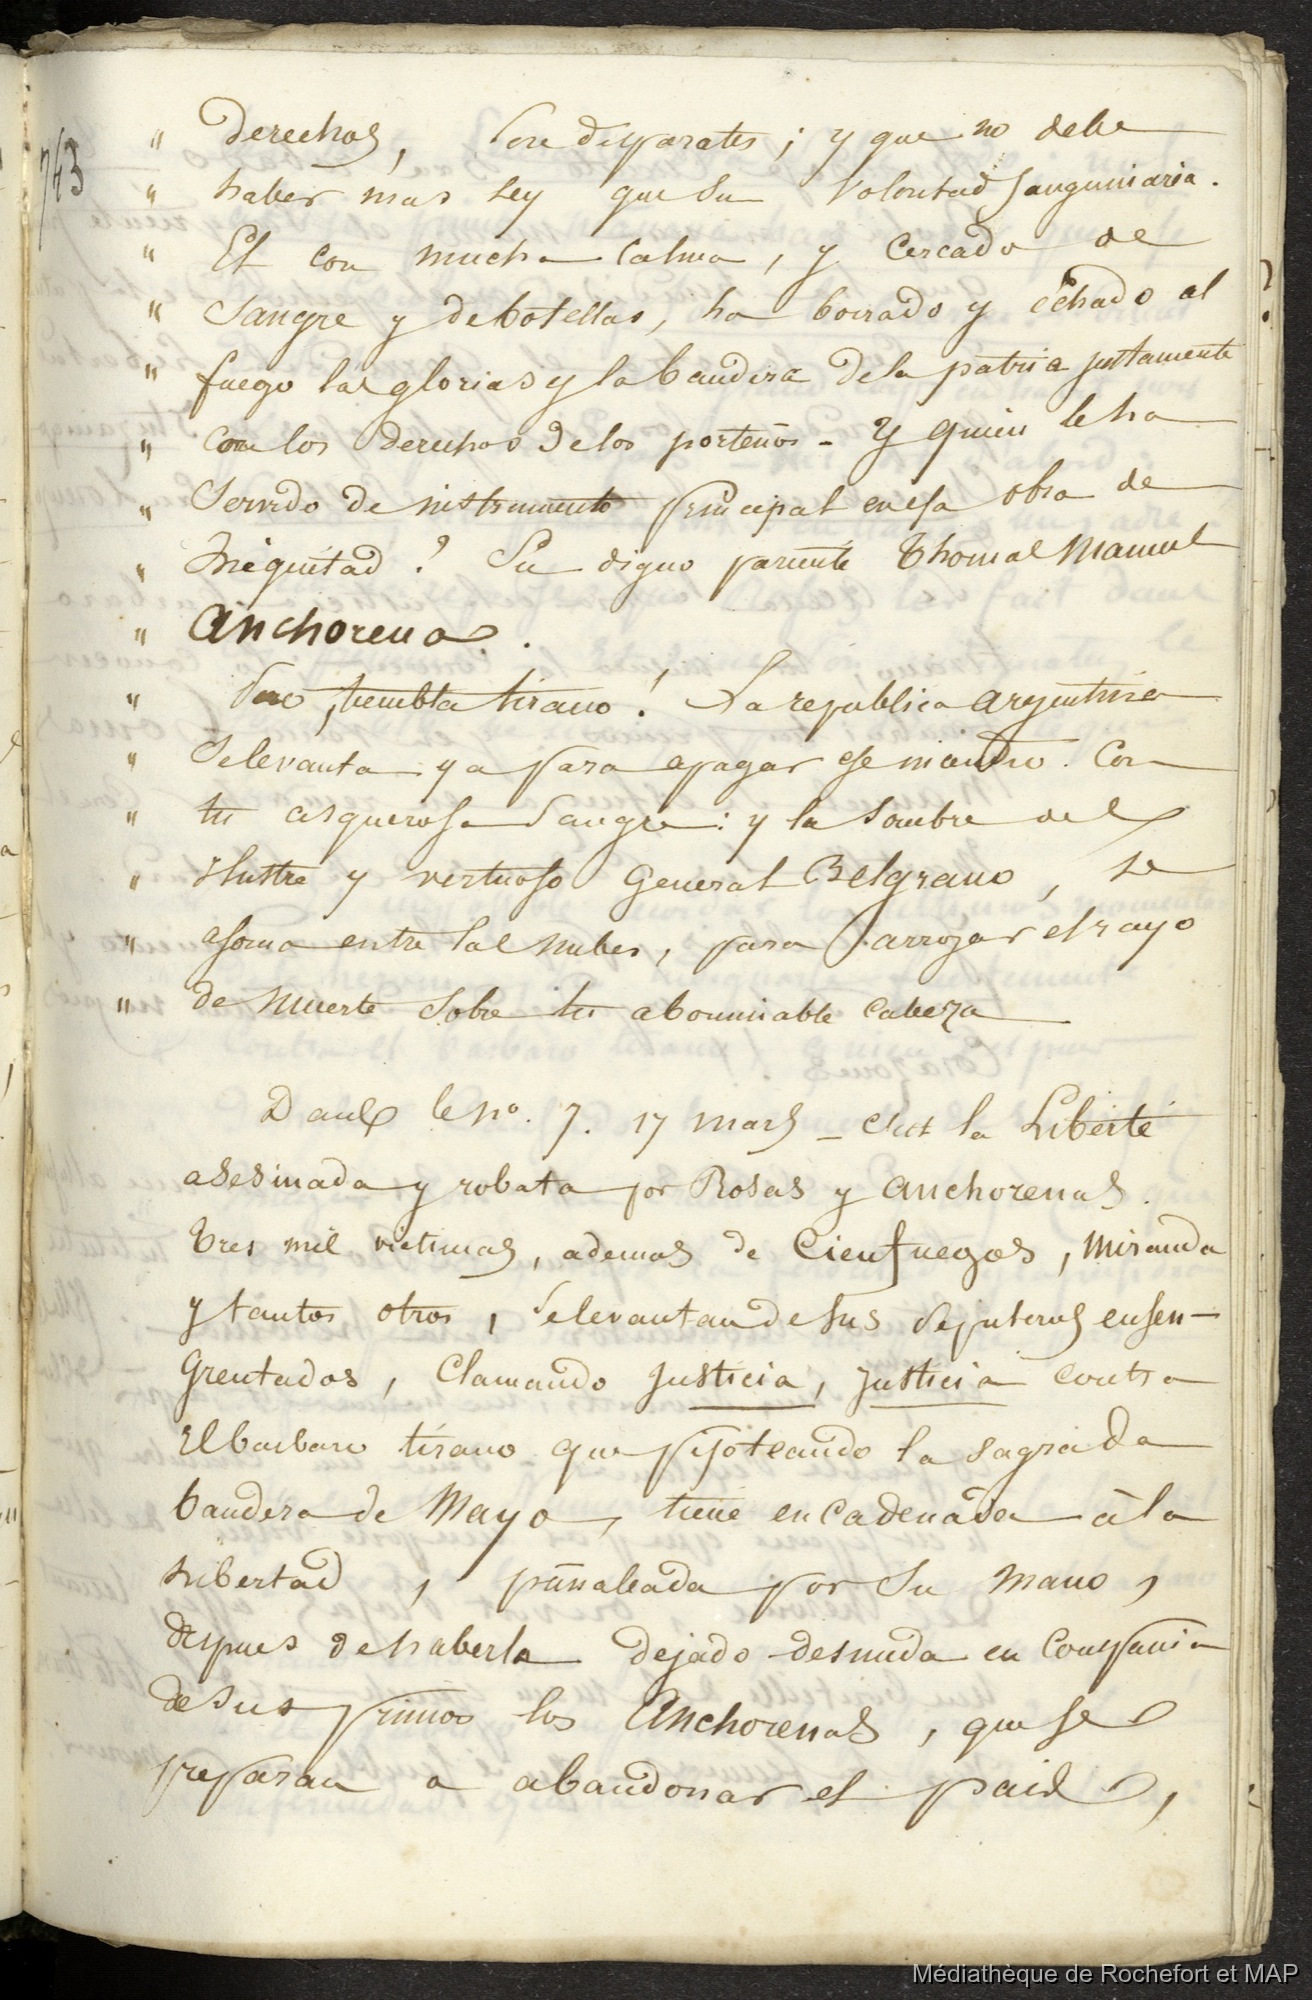 743
" derechos, son disparates ; y que no debe
" haber mas ley que su voluntad sanguinaria.
" El con mucha calma, y cercado de
" sangre y de botellas, ha borrado y echado al
" fuego las glorias y la bandera de la patria justamente
" con los derechos de los porteños - Y quien le ha
" servido de instrumento principal en esa obra de
" Iniquitad ? Su digno pariente Thomas Manuel
" Anchorena.
" Pero, tiembla tirano ! La republica argentina
" se levanta ya para apagar ese . Con
" tu asquerosa sangre : y la sombre del
" Ilustre y vertuoso General Belgrano, se
" asoma entre las nubes, para arrojar el rayo
" de muerte sobre tu abominable cabeza
Dans le no. 7. 17 mars - c'est la Liberté
asesinada y robata por Rosas y Anchorenas.
Tres mil victimas, ademas de Cienfuegos, Miranda
y tantos otros, se levantan de sus sepulcros ensen-
grentados, clamando justicia, justicia contra
El barbaro tirano que pisoteando la sagrada
bandera de Mayo, tiene encadenada à la
libertad, puñaleada por su mano,
despues de haberla dejado desnuda en Compañia
de sus primos los Anchorenas, que se
preparan a abandonar el pais,
Médiathèque de Rochefort et MAP